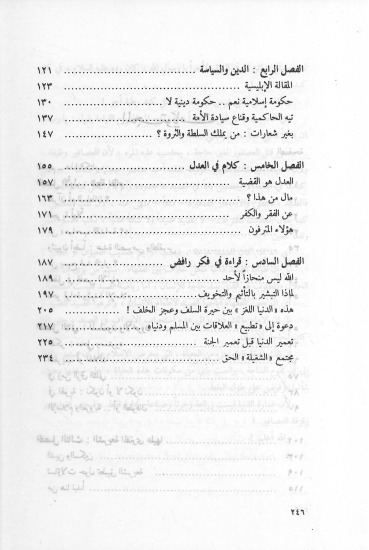 الفصل الرابع : الدين والسياسة ........................ ١٢١
المقالة الإبليسية ........................ ١٢٣
حكومة إسلامية نعم .. حكومة دينية لا ........................ ١٣٠
تيه الحاكمية وقناع سيادة الأمة ........................ ١٣٧
بغير شعارات : من يملك السلطة والثروة ؟ ........................ ١٤٧
الفصل الخامس : كلام في العدل ........................ ١٥٥
العدل هو القضية ........................ ١٥٧
مال من هذا ؟ ........................ ١٦٣
عن الفقر والكفر ........................ ١٧١
هؤلاء المترفون ........................ ١٧٩
الفصل السادس : قراءة في فكر رافض ........................ ١٨٧
الله ليس منحازاً لأحد ........................ ١٨٩
لماذا التبشير بالتأثيم والتخويف ........................ ١٩٧
هذه « الدنيا اللغز » بين حيرة السلف وعجز الخلف ! ........................ ٢٠٥
دعوة إلى « تطبيع » العلاقات بين المسلم ودنياه ........................ ٢١٧
تعمير الدنيا قبل تعمير الجنة ........................ ٢٢٥
مجتمع « الشغيلة » الحق ........................ ٢٣٤
٢٤٦